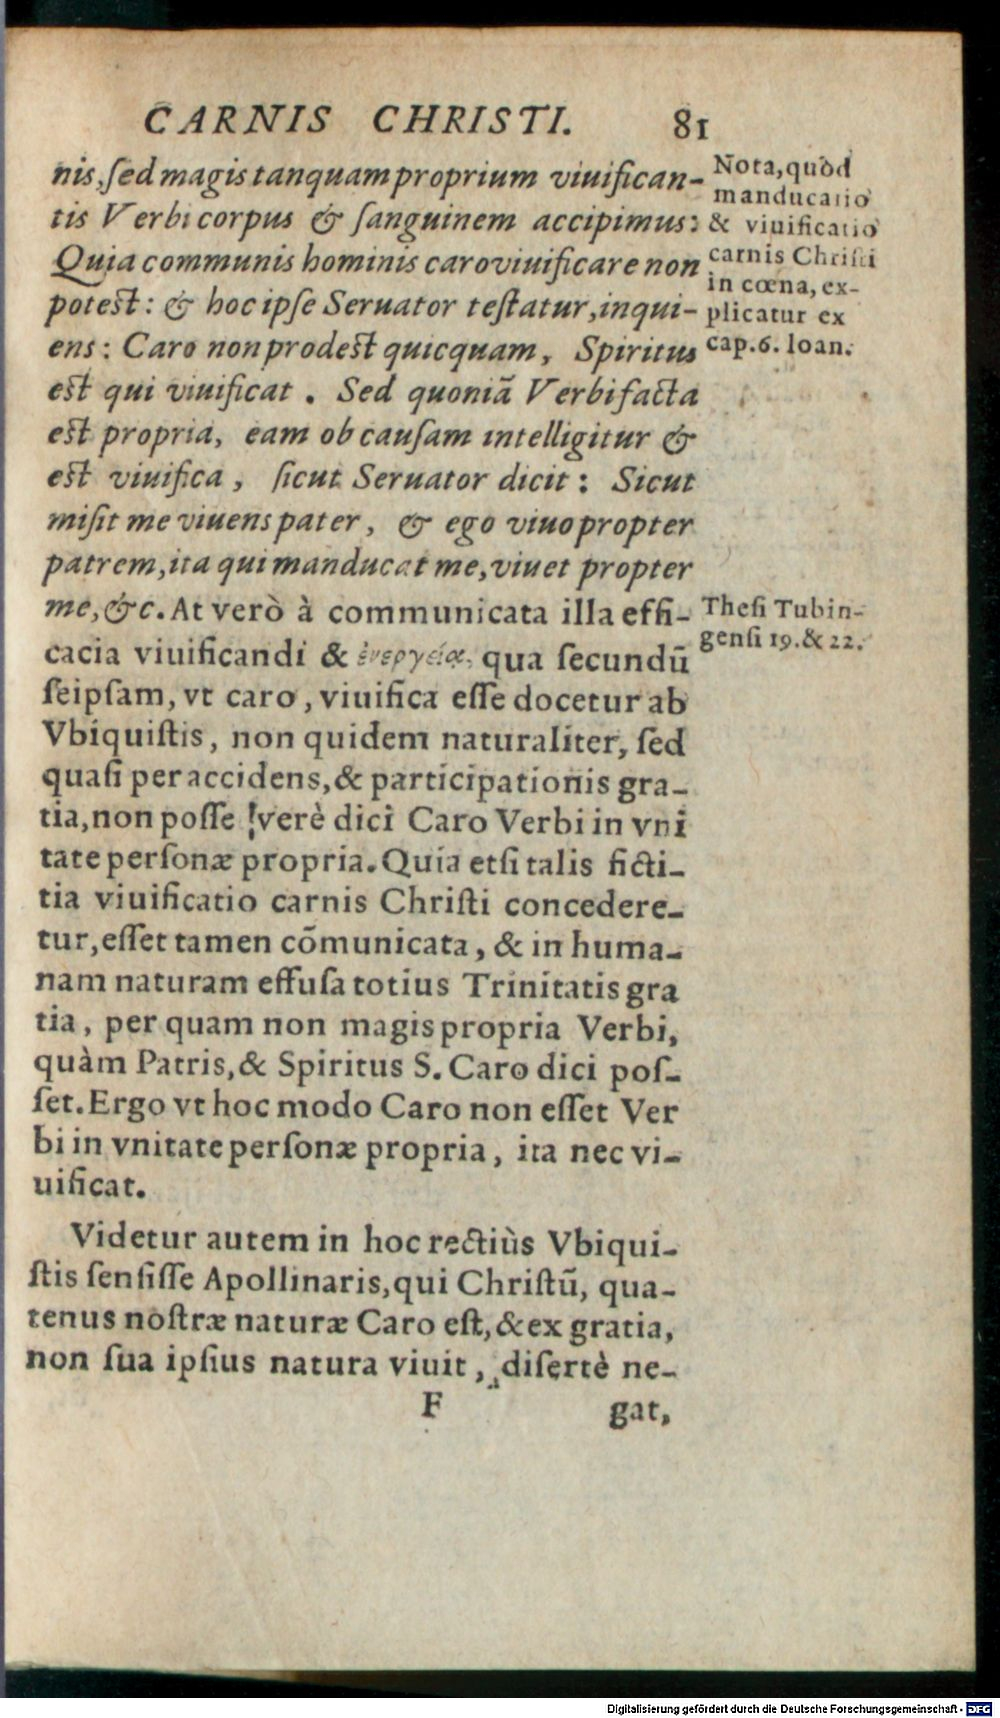 CARNIS CHRISTI. 81
nis, sed magis tanquam proprium viuifican-
tis Verbi corpus & sanguinem accipimus:
Quia communis hominis caro viuificare non
potest: & hoc ipse Seruator testatur, inqui-
ens: Caro non prodest quicquam, Spiritus
est qui viuificat. Sed quoniã Verbi facta
est propria, eam ob causam intelligitur &
est viuifica, sicut Seruator dicit: Sicut
misit me viuens pater, & ego viuo propter
patrem, ita qui manducat me, viuet propter
me, &c. At verò à communicata illa effi-
cacia viuificandi & ἐνεργείας, qua secundũ
seipsam, vt caro, viuifica esse docetur ab
Vbiquistis, non quidem naturaliter, sed
quasi per accidens, & participationis gra-
tia, non posse verè dici Caro Verbi in vni
tate personæ propria. Quia etsi talis ficti-
tia viuificatio carnis Christi concedere-
tur, esset tamen cõmunicata, & in huma-
nam naturam effusa totius Trinitatis gra
tia, per quam non magis propria Verbi,
quàm Patris, & Spiritus S. Caro dici pos-
set. Ergo vt hoc modo Caro non esset Ver
bi in vnitate personæ propria, ita nec vi-
uificat.
Videtur autem in hoc rectiùs Vbiqui-
stis sensisse Apollinaris, qui Christũ, qua-
tenus nostræ naturæ Caro est, & ex gratia,
non sua ipsius natura viuit, disertè ne-
F gat,
Nota, quòd
manducatio
& viuificatio
carnis Christi
in cœna, ex-
plicatur ex
cap. 6. Ioan.
Thesi Tubin-
gensi 19. & 22.
Digitalisierung gefördert durch die Deutsche Forschungsgemeinschaft - DFG